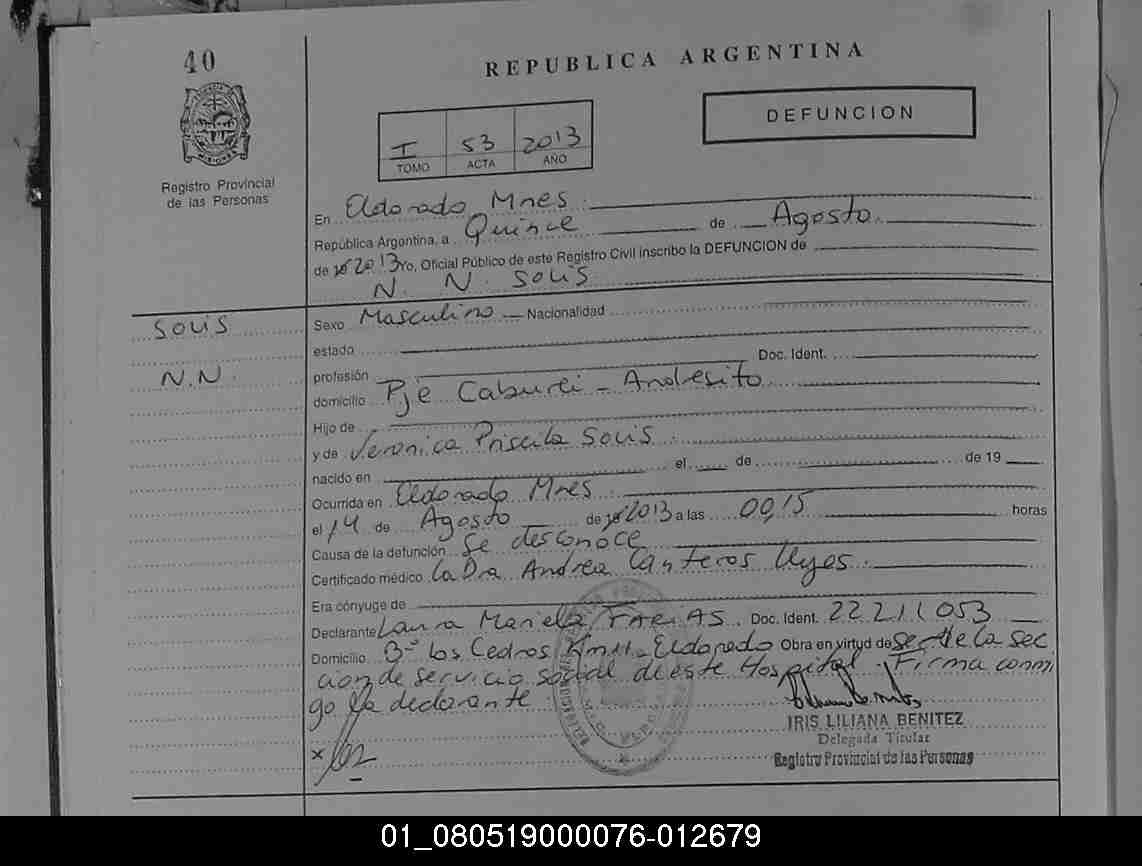 40
REPUBLICA ARGENTINA
DEFUNCION
I 53 2013
TOMO ACTA AÑO
Registro Provincial
de las Personas
En Eldorado Mnes
República Argentina, a Quince de Agosto
de 2013 yo, Oficial Público de este Registro Civil inscribo la DEFUNCION de
N. N. Solis
SOLIS
Sexo Masculino Nacionalidad
estado
N.N.
profesión Doc. Ident.
domicilio Pje Caburei - Andresito
Hijo de
y de Veronica Priscila Solis
nacido en el de de 19
Ocurrida en Eldorado Mnes
el 14 de Agosto de 2013 a las 00,15 horas
Causa de la defunción Se desconoce
Certificado médico La Dra Andrea Canteros
Era cónyuge de
Declarante Laura Mariela Doc. Ident. 22.211.053
Domicilio Bº los Cedros Km 11 - Eldorado Obra en virtud de ser de la sec
cion de servicio social de este Hospital. Firma conmi
go la declarante
IRIS LILIANA BENITEZ
Delegada Titular
Registro Provincial de las Personas
01_080519000076-012679